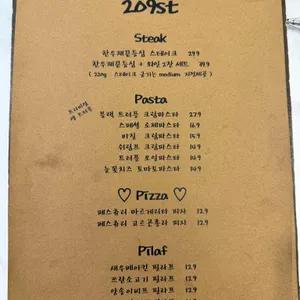 209st
Steak
한우채끝등심 스테이크 29.9
한우채끝등심 + 와인 2잔 세트 39.9
( 220g 스테이크 굽기는 medium 지정제공 )
Pasta
블랙 트러플 크림파스타 22.9
스페셜 로제파스타 16.9
비질 크림파스타 15.9
쉬림프 크림파스타 14.9
트러플 오일파스타 14.9
눈꽃치즈 토마토파스타 14.9
♡ Pizza ♡
페스츄리 마르게리타 피자 12.9
페스츄리 고르곤졸라 피자 12.9
Pilaf
새우베이컨 필라프 12.9
프랑소고기 필라프 12.9